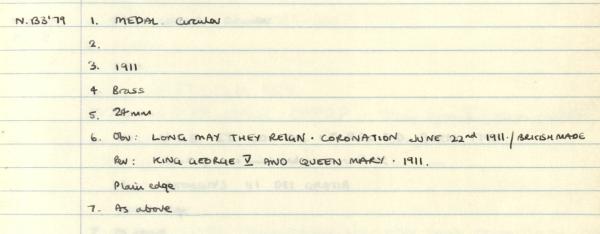 N.B3'79 1. MEDAL. Circular
2.
3. 1911
4 Brass
5. 24mm
6. Obv: LONG MAY THEY REIGN · CORONATION JUNE 22nd 1911 · / BRITISH MADE
Rev: KING GEORGE V AND QUEEN MARY · 1911.
Plain edge
7. As above